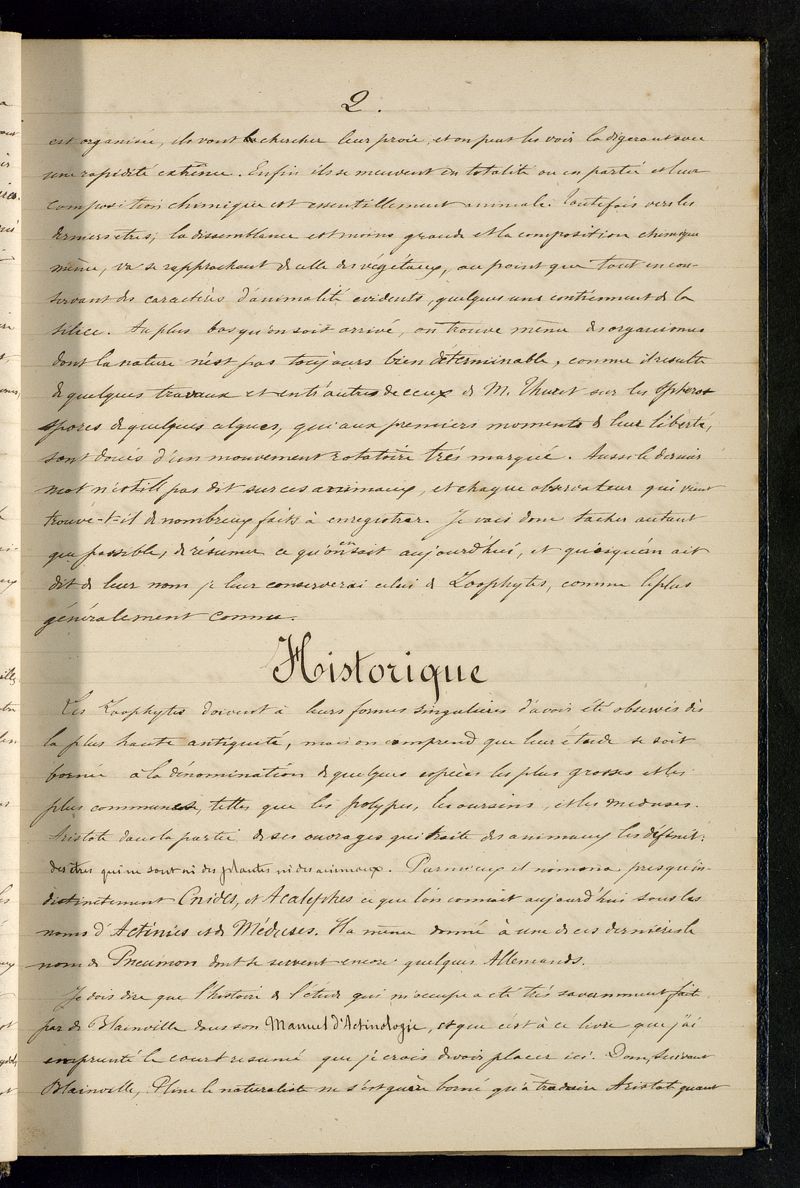 2.
est organisée, ils vont la chercher leur proie, et on peut les voir la digérant avec
une rapidité extrême. Enfin ils se meuvent en totalité ou en partie et leur
composition chimique est essentillement animale. Toutefois vers les
derniers êtres, la dissemblance est moins grande et la composition chimique
même, va se rapprochant de celle des végétaux, au point que tout en con-
servant des caractères d'animalité évidents, quelques uns contiennent de la
silice. Au plus bas qu'on soit arrivé, on trouve même des organismes
dont la nature n'est pas toujours bien déterminable, comme il resulte
de quelques travaux et entr'autres de ceux de M. Thuret sur les
spores de quelques algues, qui aux premiers moments de leur liberté,
sont doués d'un mouvement rotatoire très marqué. Aussi le dernier
mot n'est-il pas dit sur ces animaux, et chaque observateur qui vient
trouve-t-il de nombreux faits à enregistrer. Je vais donc tacher autant
que possible, de résumer ce qu'on en sait aujourd'hui, et quoiqu'on ait
dit de leur nom je leur conserverai celui de Zoophytes, comme le plus
généralement connu.
Historique
Les Zoophytes doivent à leurs formes singulières d'avoir été observés dès
la plus haute antiquité, mais on comprend que leur étude se soit
bornée à la dénomination de quelques espèces les plus grosses et les
plus communes, telles que les polypes, les oursins, et les meduses.
Aristote dans la partie de ses ouvrages qui traite des animaux les définit:
des êtres qui ne sont ni des plantes ni des animaux. Parmi eux il nomma presqu'in-
distinctement Cnides, et Acalephes ce que l'on connait aujourd'hui sous les
noms d'Actinies et de Méduses. Il a même donné à une de ces dernières le
nom de Pneumon dont se servent encore quelques Allemands.
Je dois dire que l'histoire de l'étude qui m'occupe a été très savemment fait
par de Blainville dans son Manuel d'Actinologie, et que c'est à ce livre que j'ai
emprunté le court resumé que je crois devoir placer ici. Donc, suivant
Blainville, Pline le naturaliste ne s'est guère borné qu'à traduire Aristote quant